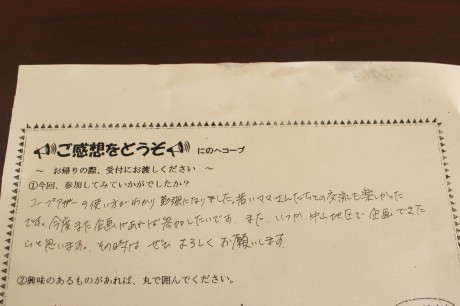 ご感想をどうぞ にのへコープ
～ お帰りの際、受付にお渡しください ～
①今回、参加してみていかがでしたか？
コープアザーの使い方がわかり勉強になりました。若いママさんたちとの交流も楽しかった
です。今度また企画があれば参加したいです。また、いつか中山地区で企画できた
らいいと思います。その時は ぜひ よろしく お願いします
②興味のあるものがあれば、丸で囲んでください。